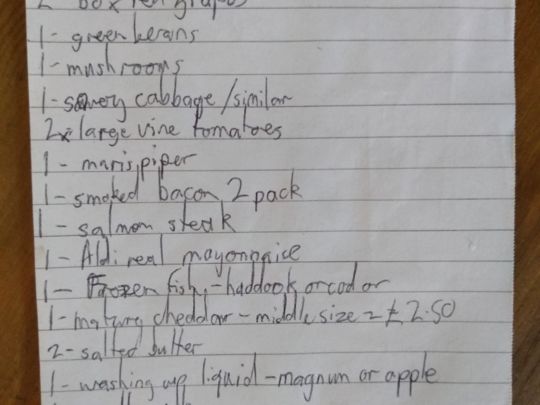 2 box red grapes
1- green beans
1- mushrooms
1- savey cabbage/similar
2x large vine tomatoes
1- maris piper
1- smoked bacon 2 pack
1- salmon steak
1- Aldi real mayonnaice
1- Frozen fish - haddock or cod or
1- mature cheddar - middle size = £2.50
2- salted butter
1- washing up liquid - magnum or apple